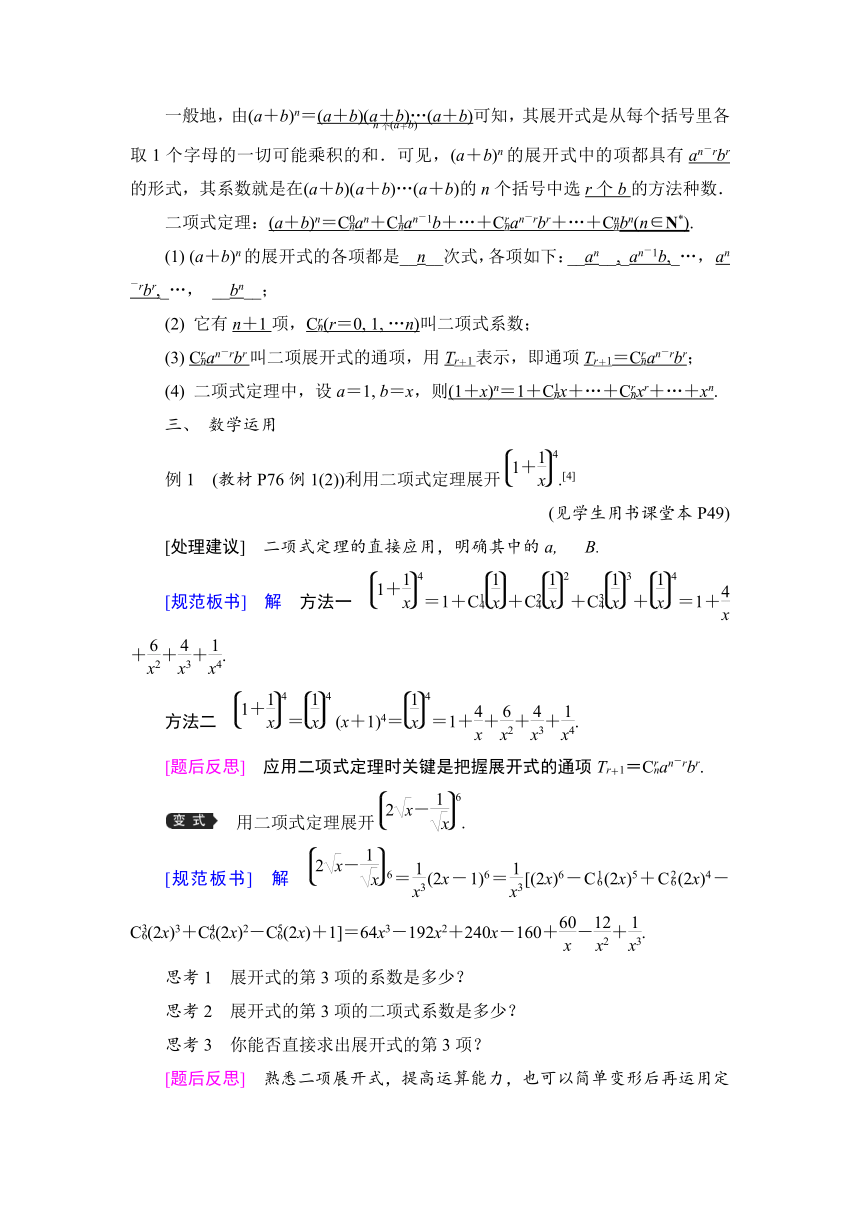 一般地,由(a+b)ⁿ=(a+b)(a+b)…(a+b)可知,其展开式是从每个括号里各
n个(a+b)
取 1 个字母的一切可能乘积的和.可见,(a+b)ⁿ的展开式中的项都具有 aⁿ⁻ʳbʳ
的形式,其系数就是在(a+b)(a+b)…(a+b)的 n 个括号中选 r 个 b 的方法种数.
二项式定理:(a+b)ⁿ=C⁰ₙaⁿ+C¹ₙaⁿ⁻¹b+…+Cʳₙaⁿ⁻ʳbʳ+…+Cⁿₙbⁿ(n∈N*).
(1) (a+b)ⁿ的展开式的各项都是__n__次式,各项如下:__aⁿ__, aⁿ⁻¹b, …, aⁿ
⁻ʳbʳ, …, __bⁿ__;
(2) 它有 n+1 项,Cʳₙ(r=0, 1, …n)叫二项式系数;
(3) Cʳₙaⁿ⁻ʳbʳ叫二项展开式的通项,用 Tᵣ₊₁表示,即通项 Tᵣ₊₁=Cʳₙaⁿ⁻ʳbʳ;
(4) 二项式定理中,设 a=1, b=x,则(1+x)ⁿ=1+C¹ₙx+…+Cʳₙxʳ+…+xⁿ.
三、 数学运用
例 1 (教材 P76 例 1(2))利用二项式定理展开(1+1/x)⁴.[4]
(见学生用书课堂本 P49)
[处理建议] 二项式定理的直接应用,明确其中的 a, B.
[规范板书] 解 方法一 (1+1/x)⁴=1+C¹₄(1/x)+C²₄(1/x)²+C³₄(1/x)³+(1/x)⁴=1+4/x
+6/x²+4/x³+1/x⁴.
方法二 (1+1/x)⁴=(1/x)⁴(x+1)⁴=(1/x)⁴=1+4/x+6/x²+4/x³+1/x⁴.
[题后反思] 应用二项式定理时关键是把握展开式的通项 Tᵣ₊₁=Cʳₙaⁿ⁻ʳbʳ.
变 式 用二项式定理展开(2√x-1/√x)⁶.
[规范板书] 解 (2√x-1/√x)⁶=1/x³(2x-1)⁶=1/x³[(2x)⁶-C¹₆(2x)⁵+C²₆(2x)⁴-
C³₆(2x)³+C⁴₆(2x)²-C⁵₆(2x)+1]=64x³-192x²+240x-160+60/x-12/x²+1/x³.
思考 1 展开式的第 3 项的系数是多少?
思考 2 展开式的第 3 项的二项式系数是多少?
思考 3 你能否直接求出展开式的第 3 项?
[题后反思] 熟悉二项展开式,提高运算能力,也可以简单变形后再运用定